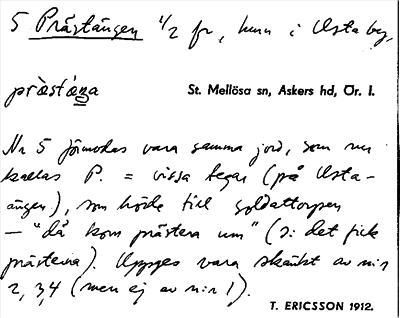 5 Prästängen 1/2 fr, hem i Östa by,
pràstáŋa
St. Mellösa sn, Askers hd, Ör. l.
Nr 5 förmodas vara samma jord, som nu
kallas P. = vissa tegar (på Östa-
ängen), som hörde till soldattorpen
— "då kom prästena um" (ɔ: det fick
prästerna). Uppges vara skänkt av n:r
2, 3, 4 (men ej av n:r 1).
T. ERICSSON 1912.